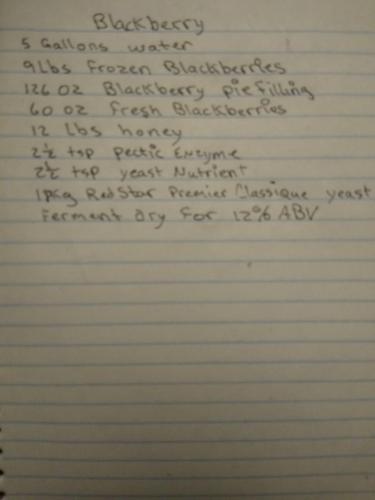 Blackberry
5 Gallons water
9Lbs Frozen Blackberries
126 oz Blackberry pie filling
60 oz fresh Blackberries
12 lbs honey
2½ tsp Pectic Enzyme
2½ tsp yeast Nutrient
1pkg Red Star Premier Classique yeast
Ferment Dry for 12% ABV